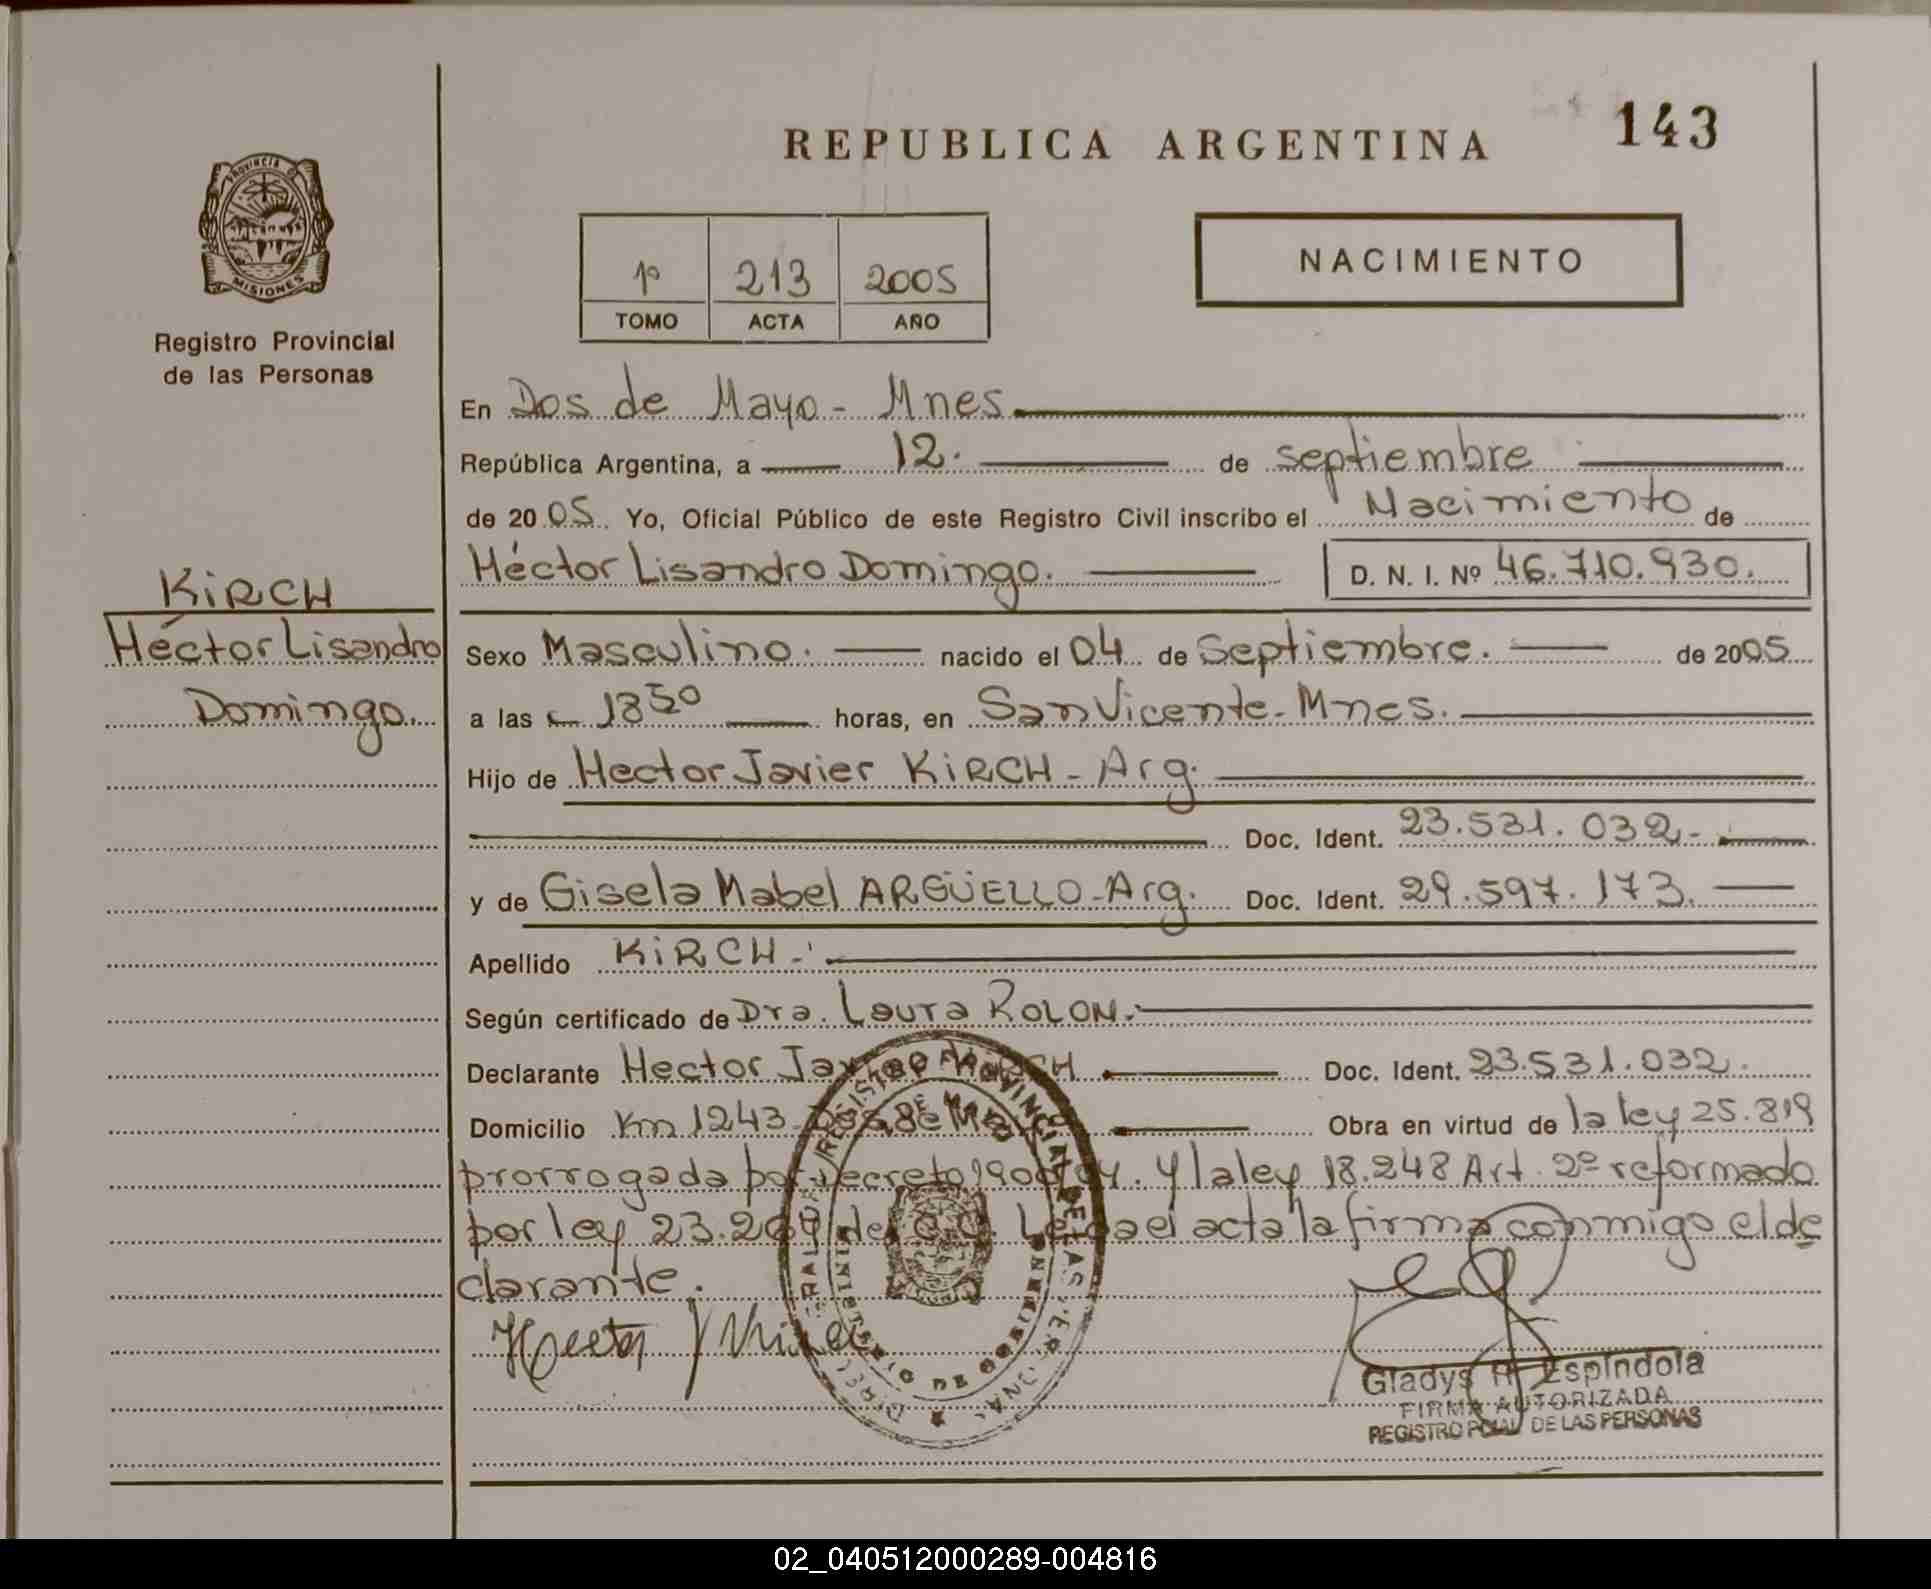 REPUBLICA ARGENTINA 143
PROVINCIA DE
MISIONES
Registro Provincial
de las Personas
1º 213 2005
TOMO ACTA AÑO
NACIMIENTO
En Dos de Mayo - Mnes
República Argentina, a 12. de septiembre
de 2005. Yo, Oficial Público de este Registro Civil inscribo el Nacimiento de
Héctor Lisandro Domingo. D. N. I. Nº 46.710.930.
KiRCH
Héctor Lisandro
Domingo.
Sexo Masculino. nacido el 04 de Septiembre. de 2005
a las 18 50 horas, en San Vicente - Mnes.
Hijo de Hector Javier KiRCH - Arg.
Doc. Ident. 23.531.032.-
y de Gisela Mabel ARGÜELLO - Arg. Doc. Ident. 29.597.173.
Apellido KiRCH.-
Según certificado de Dra. Laura ROLON.-
Declarante Hector Javier KiRCH Doc. Ident. 23.531.032.
Domicilio Km 1243 - Dos de Mayo Obra en virtud de la ley 25.819
prorrogada por decreto 1900/04. Y la ley 18.248 Art. 2º reformado
por ley 23.264 del C.C. Leida el acta la firma conmigo el de
clarante.
Hector
REGISTRO PROVINCIAL DE LAS PERSONAS
MINISTERIO DE GOBIERNO
Gladys Espíndola
FIRMA AUTORIZADA
REGISTRO PCIAL DE LAS PERSONAS
02_040512000289-004816